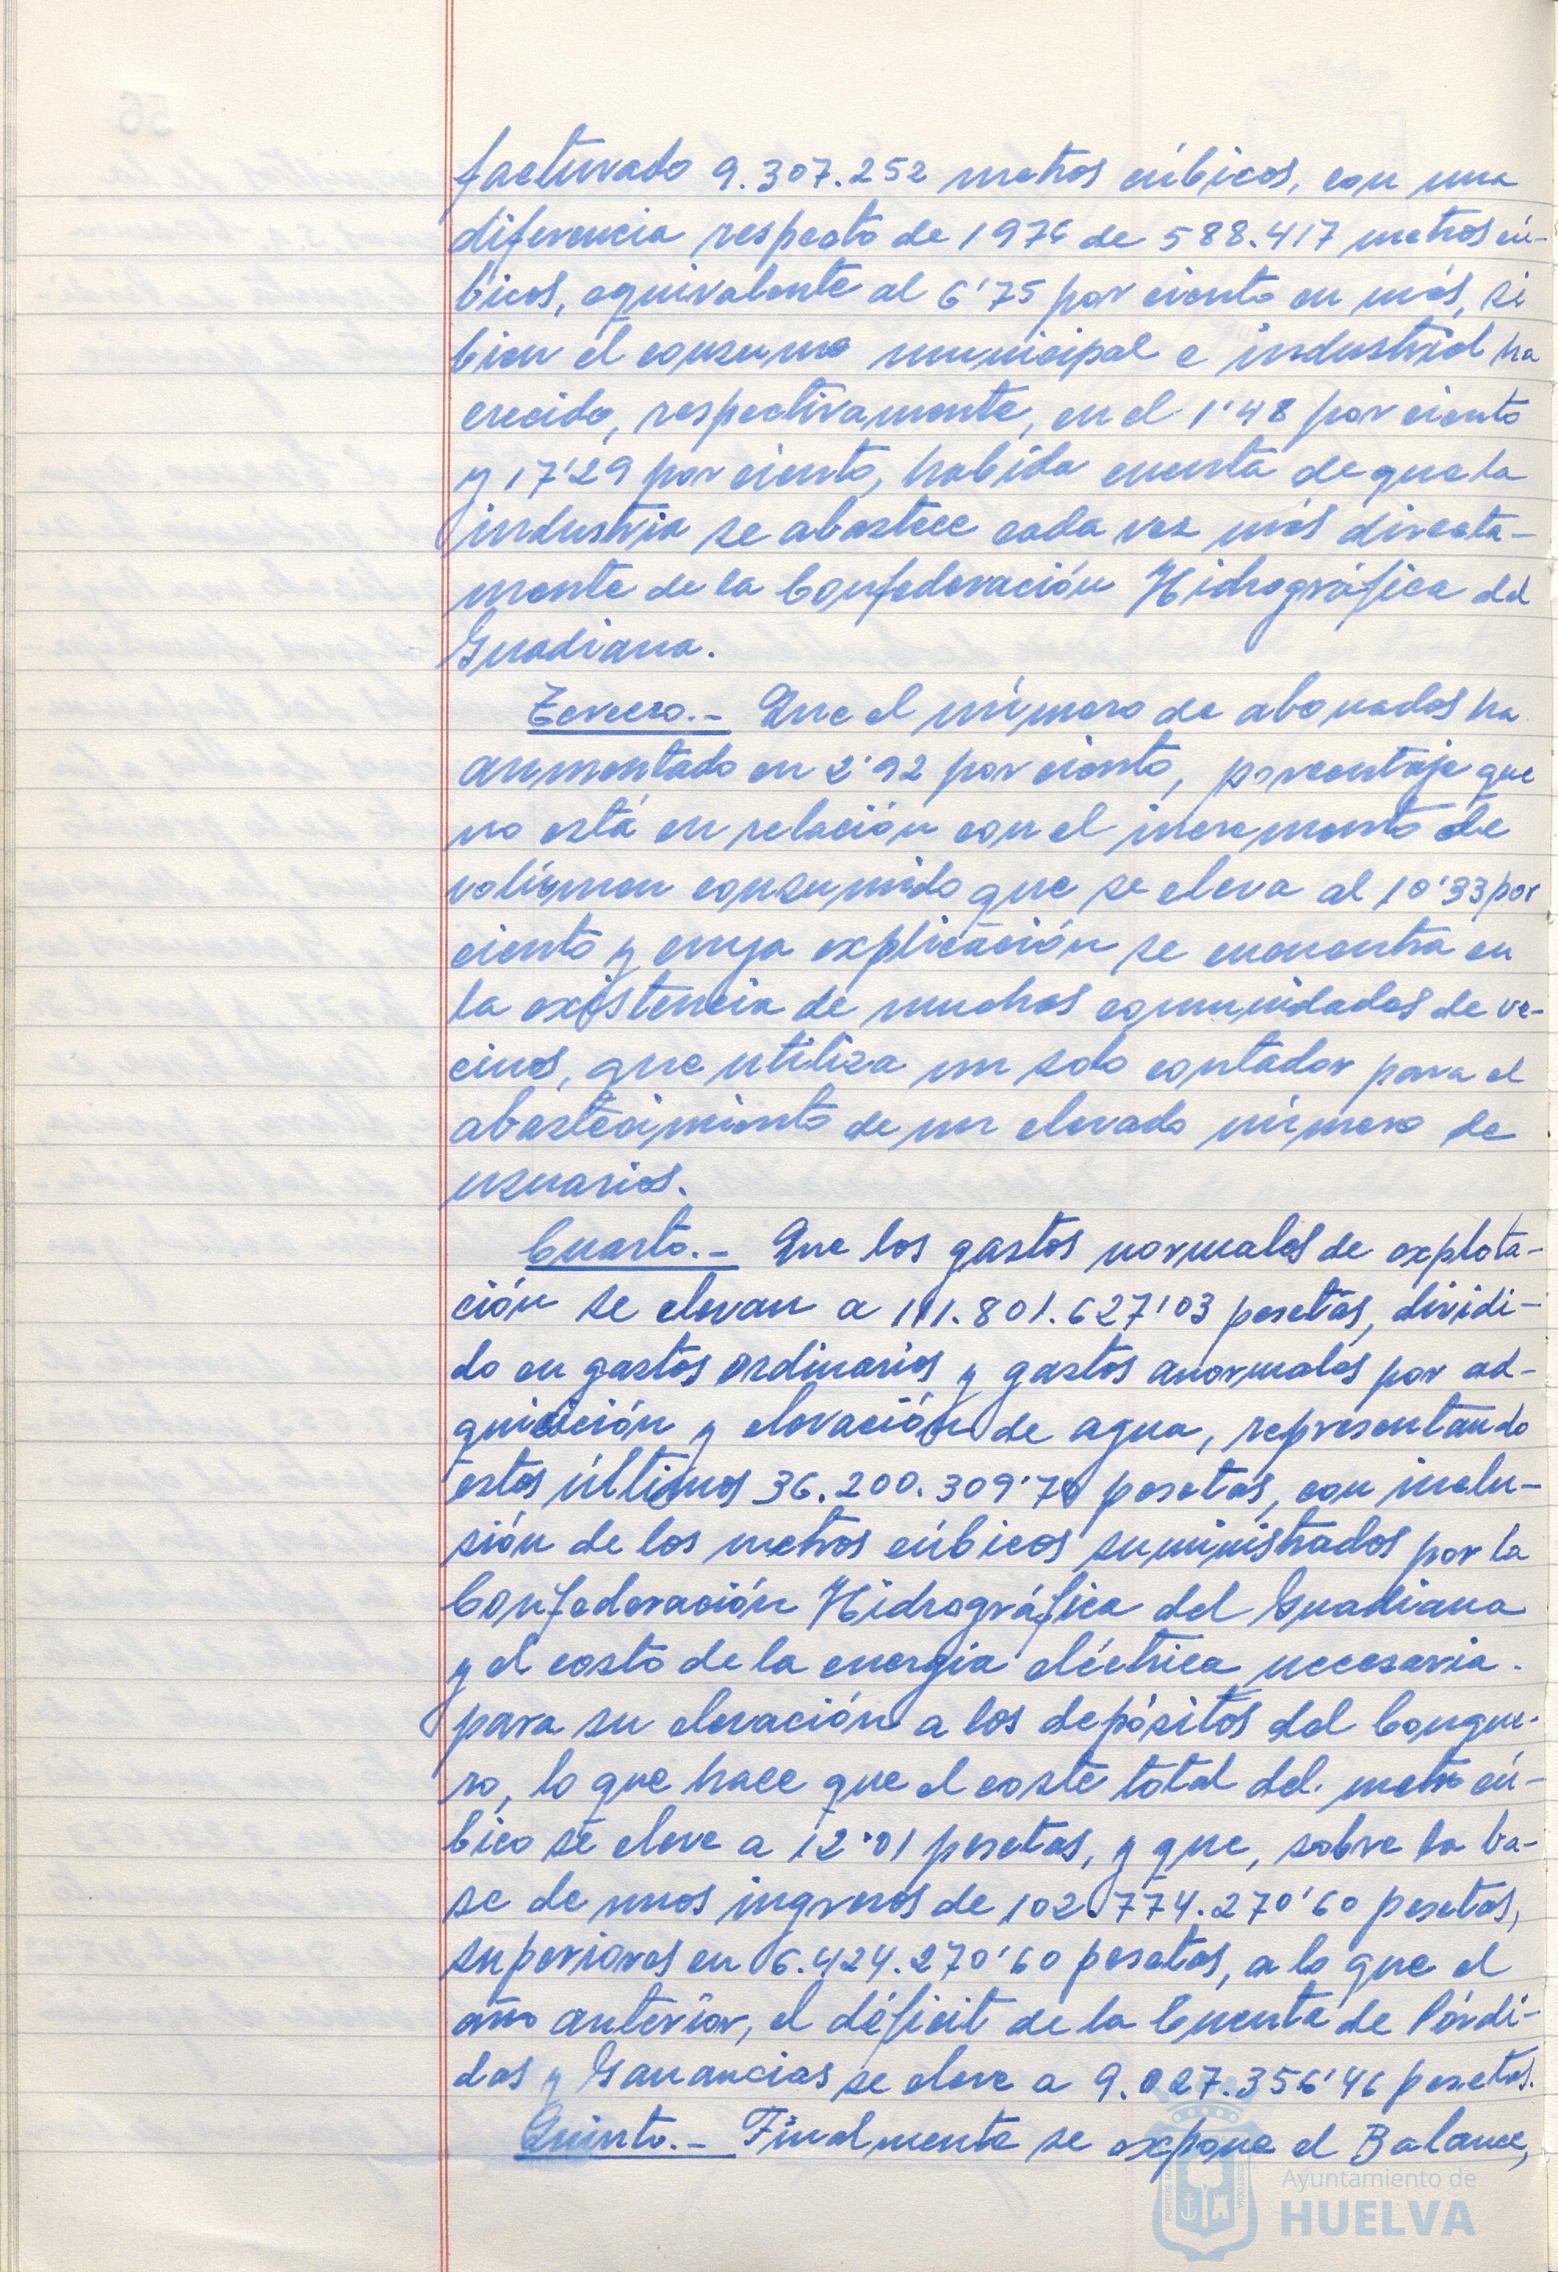 facturado 9.307.252 metros cúbicos, con una
diferencia respecto de 1976 de 588.417 metros cú-
bicos, equivalente al 6'75 por ciento en más, si
bien el consumo municipal e industrial ha
crecido, respectivamente, en el 1'48 por ciento
y 17'29 por ciento, habida cuenta de que la
industria se abastece cada vez más directa-
mente de la Confederación Hidrográfica del
Guadiana.
Tercero.- Que el número de abonados ha
aumentado en 2'92 por ciento, porcentaje que
no está en relación con el incremento de
volúmen consumido que se eleva al 10'33 por
ciento y cuya explicación se encuentra en
la existencia de muchas comunidades de ve-
cinos, que utiliza un solo contador para el
abastecimiento de un elevado número de
usuarios.
Cuarto.- Que los gastos normales de explota-
ción se elevan a 111.801.627'03 pesetas, dividi-
do en gastos ordinarios y gastos anormales por ad-
quisición y elevación de agua, representando
estos últimos 36.200.309'70 pesetas, con inclu-
sión de los metros cúbicos suministrados por la
Confederación Hidrográfica del Guadiana
y el costo de la energia eléctrica necesaria
para su elevación a los depósitos del Conque-
ro, lo que hace que el coste total del metro cú-
bico se eleve a 12'01 pesetas, y que, sobre la ba-
se de unos ingresos de 102.774.270'60 pesetas,
superiores en 6.424.270'60 pesetas, a lo que el
año anterior, el déficit de la Cuenta de Pérdi-
das y Ganancias se eleve a 9.027.356'46 pesetas.
Quinto.- Finalmente se expone el Balance,
Ayuntamiento de
HUELVA